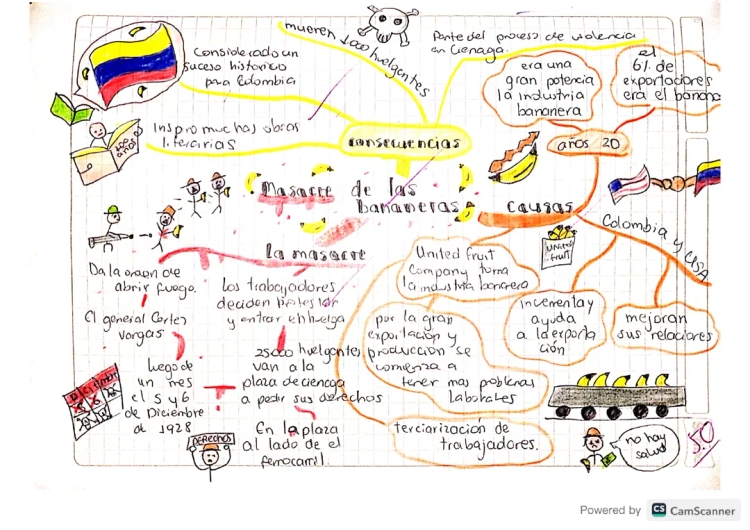 mueren 1000 huelgentes
Parte del proceso de violencia
en Cienaga.
Considerado un
suceso historico
para Colombia
era una
gran potencia
la industria
bananera
el
6% de
exportadores
era el banano
100
años
Inspiro muchas obras
literarias
consecuencias
años 20
Masacre de las
bananeras
causas
Colombia y USA
la masacre
United fruit
Company toma
la industria bananera
UNITED
fruit
Da la orden de
abrir fuego.
Los trabajadores
deciden protestar
y entrar en huelga
incrementa y
ayuda
a la exporta
ción
mejoran
sus relaciones
El general Cortez
vargas
por la gran
exportación y
producción se
comienza a
tener mas problemas
laborales
25000 huelgentes
van a la
plaza de cienaga
a pedir sus derechos
luego de
un mes
el 5 y 6
de Diciembre
de 1928
Diciembre
DERECHOS
En la plaza
al lado de el
ferrocarril.
terciarización de
trabajadores.
no hay
salud
5.0
Powered by CS CamScanner